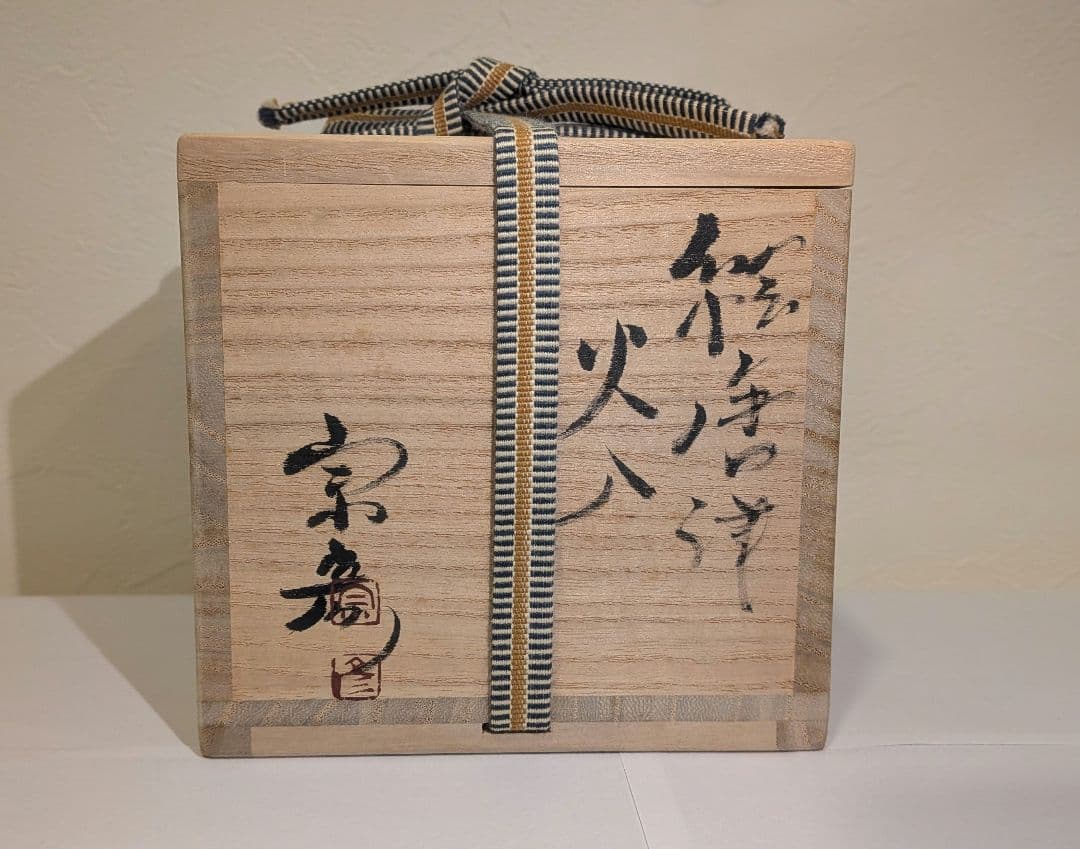 絵唐津
火入
宗